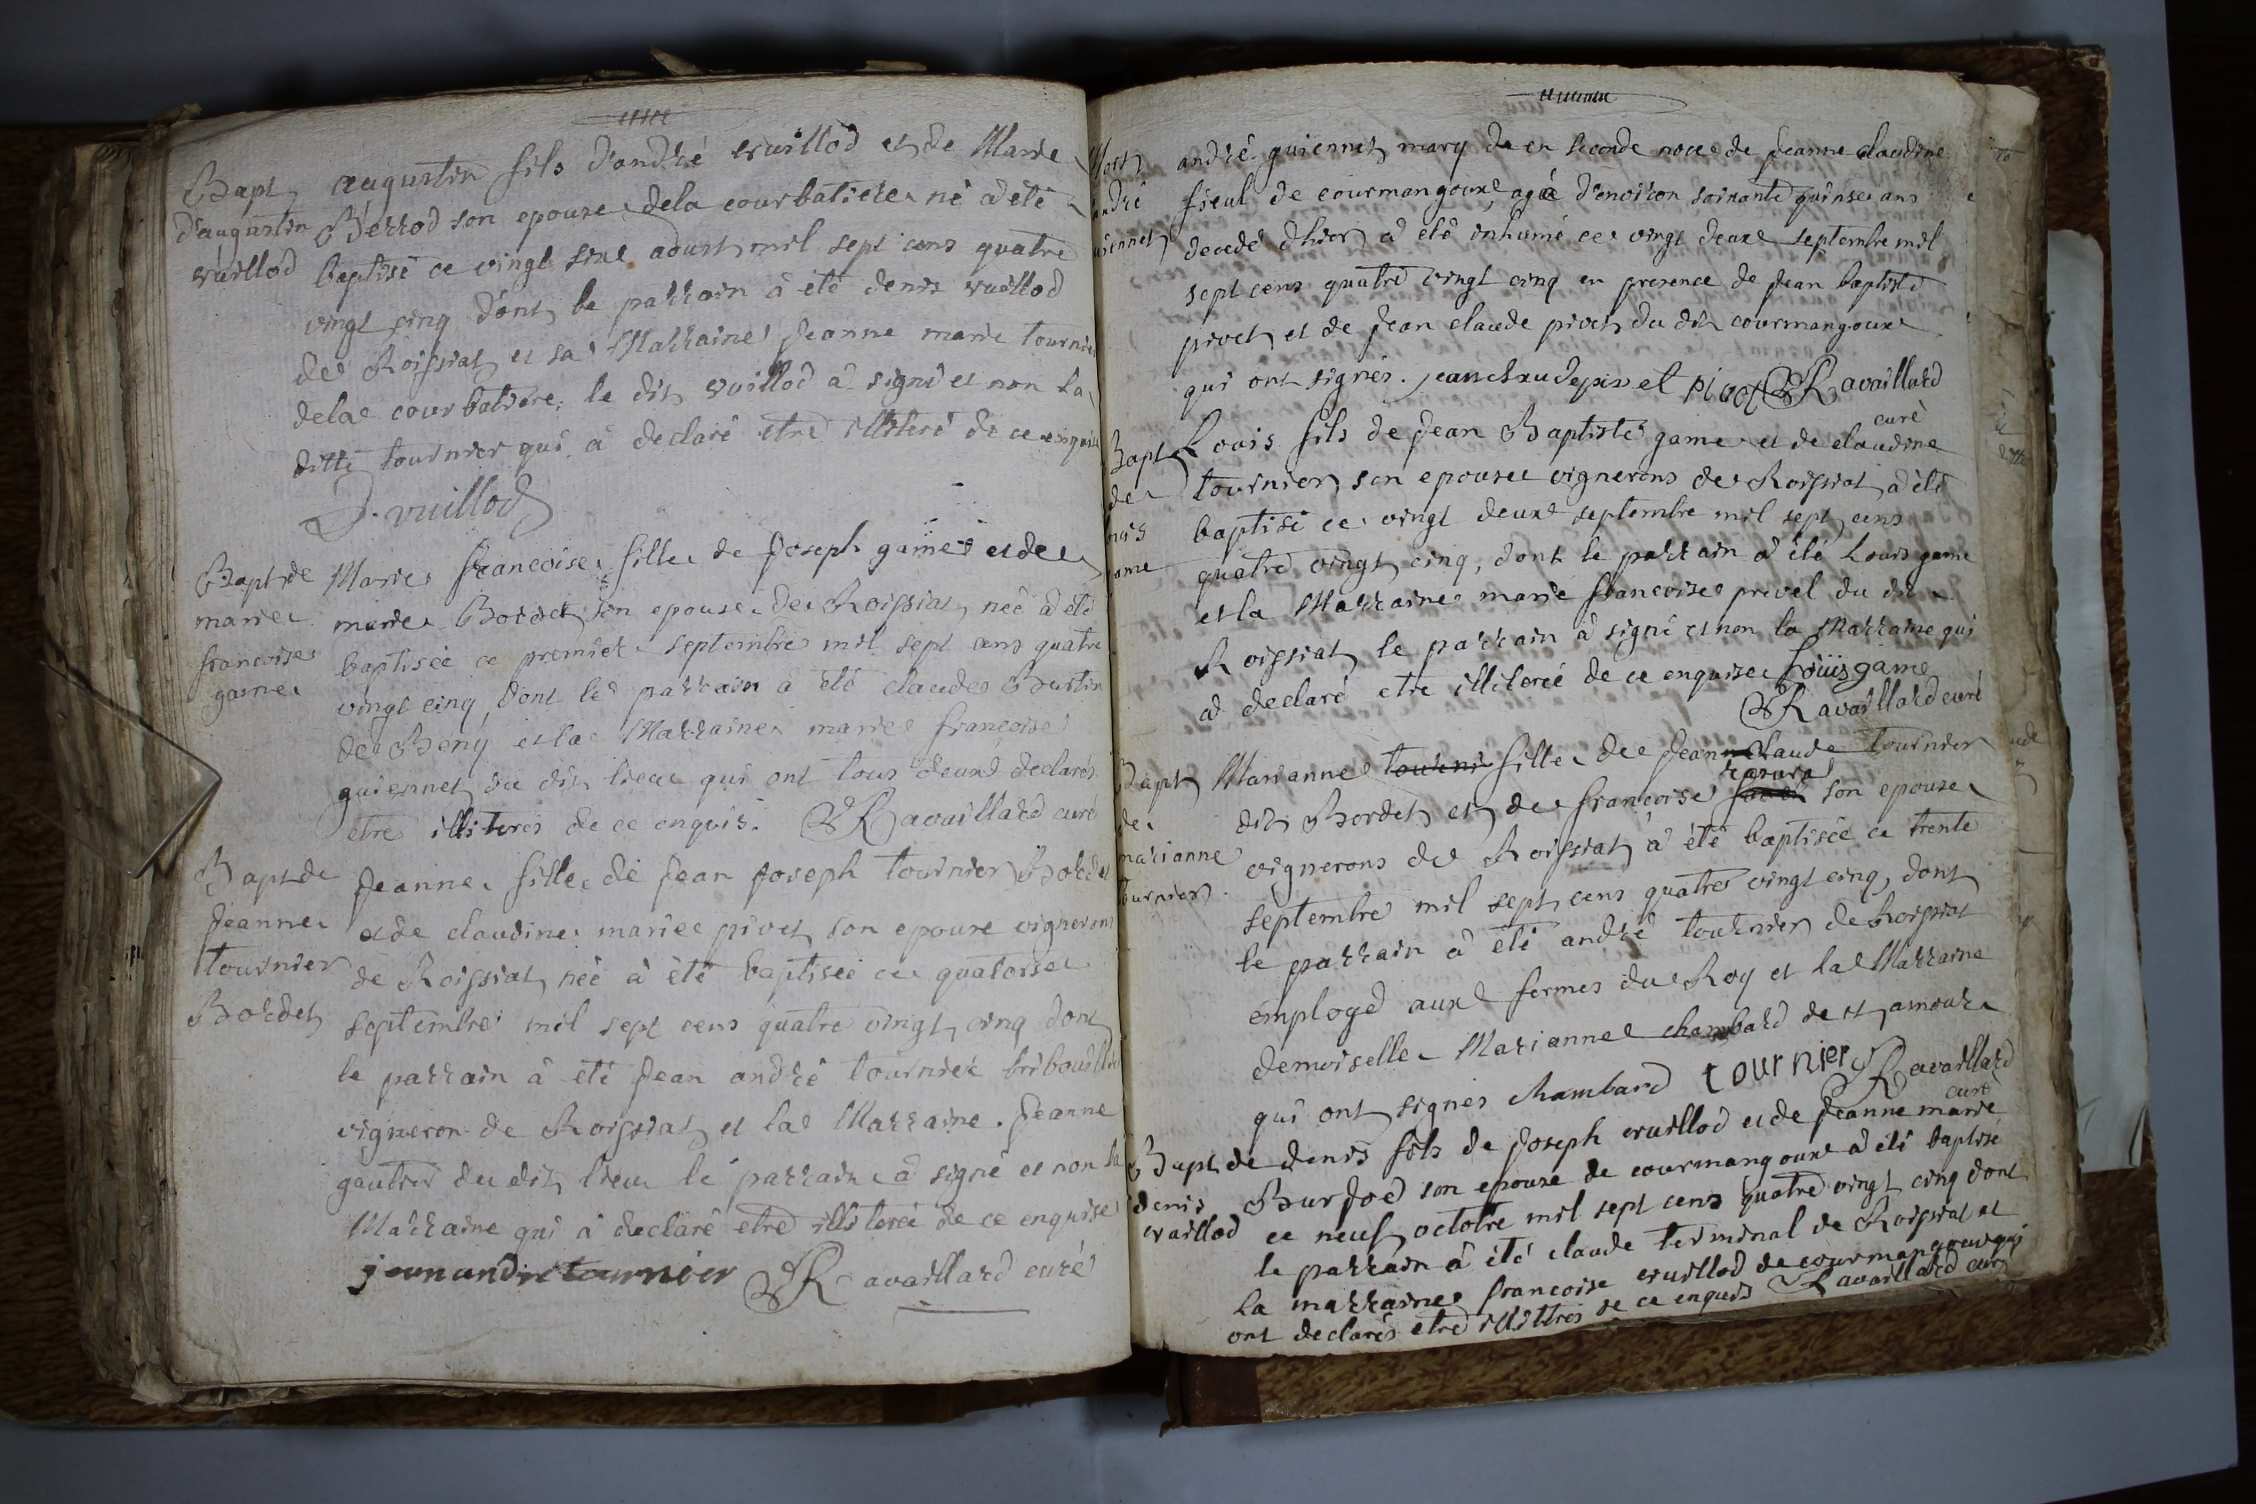 Bapt
d'augustin
vuillod
augustin fils d'andré vuillod et de Marie
Berrod son epouse dela courbatiere né a été
baptisé ce vingt sixe aoust mil sept cens quatre
vingt cinq dont le parrain à été denis vuillod
de Roissiat et sa Marraine Jeanne marie tournier
dela courbatiere, le dit vuillod a signé et non la
ditte tournier qui à declaré etre illiteré de ce enquise
D. vuillod
Bapt de
marie
francoise
game
Marie francoise fille de Joseph game et de
marie Bordet son epouse de Roissiat, neé a été
baptisée ce premier septembre mil sept cens quatre
vingt cinq dont le parrain à été claude
de Beny et la Marraine marie francoise
guiennet du dit lieu qui ont tous deuxe declarés
etre illiterés de ce enquis. Ravaillard curé
Bapt de
Jeanne
tournier
Bordet
Jeanne fille de Jean Joseph tournier Bordet
et de claudine mariee pivet son epouse vignerons
de Roissiat neé à été baptisée ce quatorse
septembre mil sept cens quatre vingt cinq dont
le parrain à été Jean andré tournier
vigneron de Roissiat et la Marraine Jeanne
gautier du dit lieu le parrain a signé et non la
Marraine qui à declaré etre illiterée de ce enquise
jean andre tournier Ravaillard curé
Mort
andré
guiennet
andré guiennet mary de en seconde noce de Jeanne claudine
fieul de courmangouxe agée d'environ soixante quinse ans
decedé d'hier a été inhumé ce vingt deuxe septembre mil
sept cens quatre vingt cinq en presence de Jean baptiste
pivet et de Jean claude pivet du dit courmangouxe
qui ont signés. jean claude pivet pivet Ravaillard
curé
Bapt
de
louis
game
Louis fils de Jean Baptiste game et de claudine
tournier son epouse vignerons de Roissiat a été
baptisé ce vingt deuxe septembre mil sept cens
quatre vingt cinq, dont le parrain a été Louis game
et la Marraine marie francoise privel du dit
Roissiat le parrain à signé et non la Marraine qui
a declaré etre illiterée de ce enquise Loüis game
Ravaillard curé
Bapt
de
marianne
tournier
Marianne fille de Jean claude tournier
dit Bordet et de francoise son epouse
vignerons de Roissiat à été baptisée ce trente
septembre mil sept cens quatre vingt cinq, dont
le parrain à été andré tournier de Roissiat
employé auxe fermes du Roy et la Marraine
demoiselle Marianne chambard de st amour
qui ont signes chambard tournier Ravaillard
curé
Bapt de
denis
vuillod
denis fils de Joseph vuillod et de Jeanne marie
Burjod son epouse de courmangouxe à été baptisé
ce neuf octobre mil sept cens quatre vingt cinq dont
le parrain à été claude terminal de Roissiat et
la marraine francoise vuillod de courmangoux qui
ont declarés etre illittrés de ce enquis Ravaillard curé